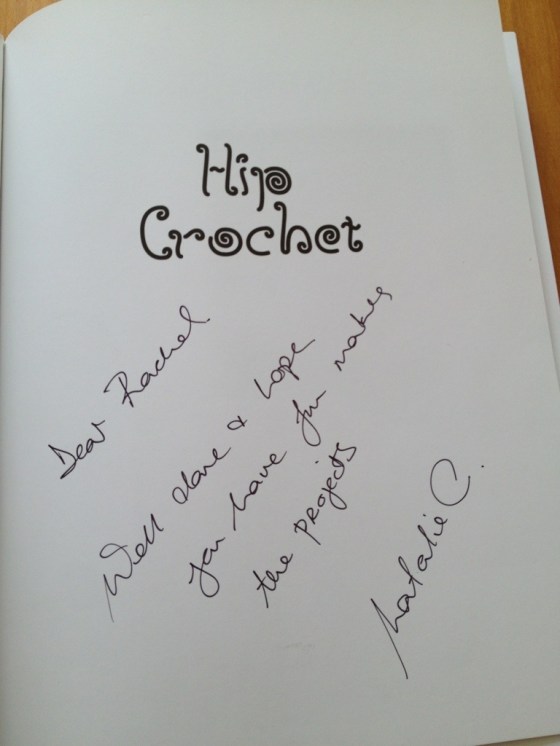 Hip
Crochet
Dear Rachel.
Well done & hope
you have fun making
the projects
Natalie C.